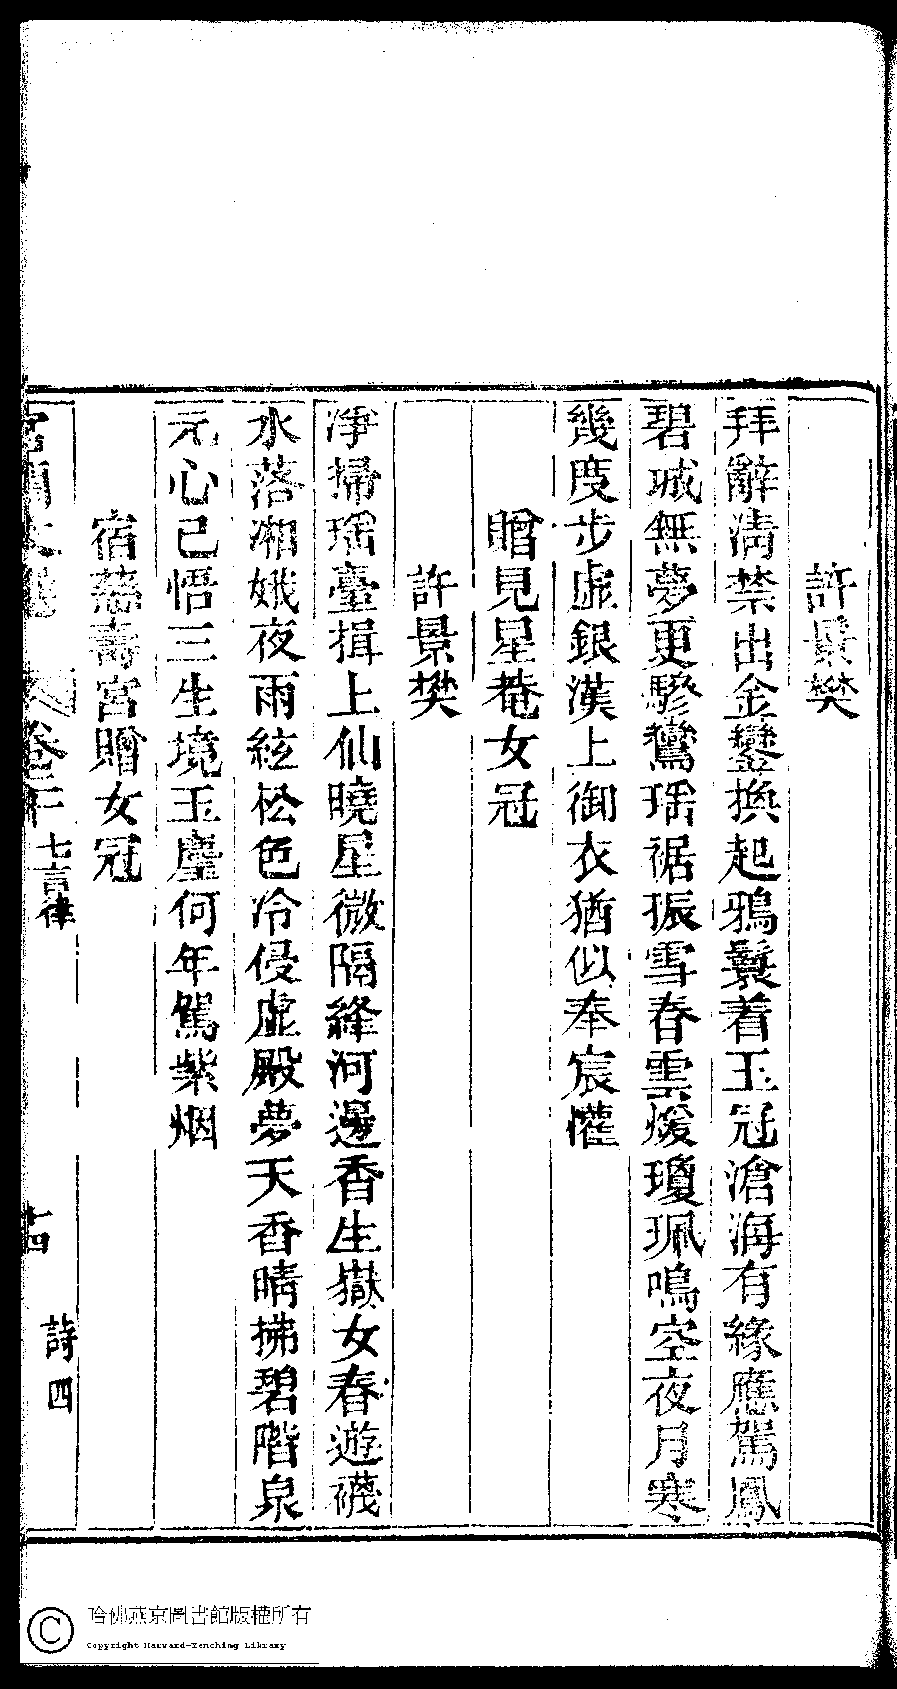 許景樊
拜辭淸禁出金鑾換起鴉鬟着玉冠滄海有緣應駕鳳
碧城無夢更驂鸞瑶裾振雪春雲煖瓊珮鳴空夜月寒
幾度步虛銀漢上御衣猶似奉宸懽
贈見星菴女冠
許景樊
淨掃瑶臺揖上仙曉星微隔絳河邊香生嶽女春遊襪
水落湘娥夜雨絃松色冷侵虛殿夢天香晴拂碧階泉
元心已悟三生境玉麈何年駕紫烟
宿慈壽宮贈女冠
卷三 七言律
十四 詩四
哈佛燕京圖書館版權所有
Copyright Harvard-Yenching Library